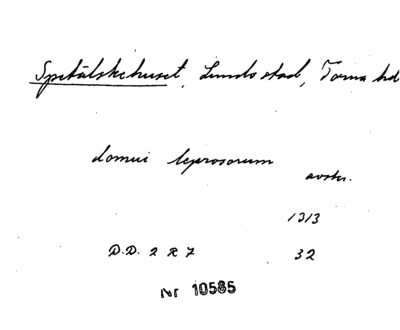 Spetälskehuset, Lunds stad, Torna hd
domui leprosorum
avskr.
1313
D.D. 2 R 7 32
Nr 10585